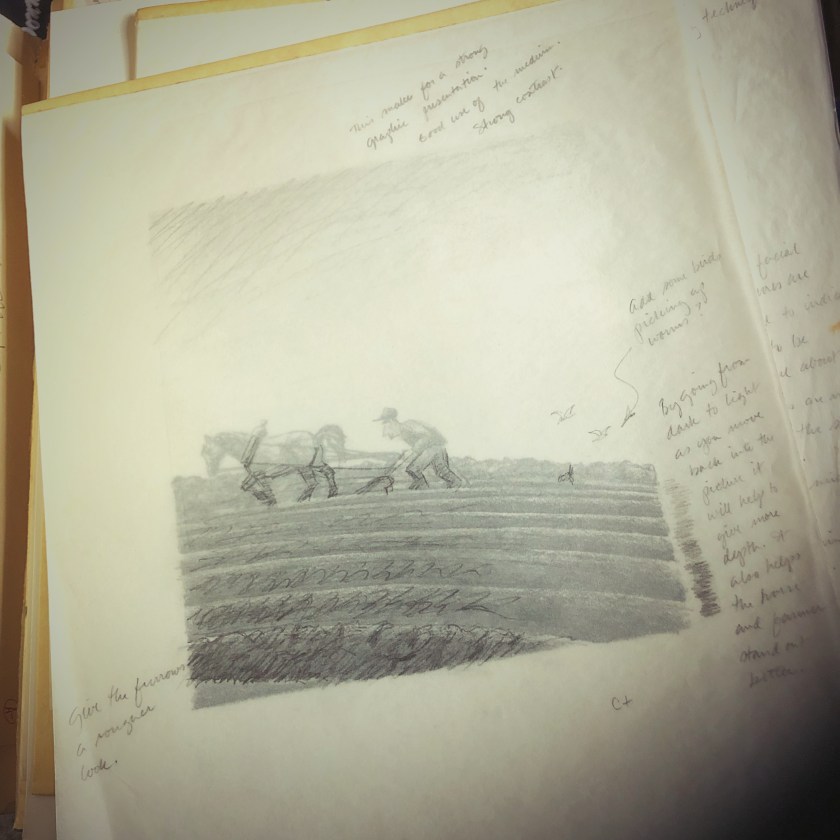 This makes for a strong
graphic presentation.
Good use of the medium.
Strong contrast.
Add some birds
picking up
worms?
By going from
dark to light
as you move
back into the
picture it
will help to
give more
depth. It
also helps
the horse
and farmer
stand out
better.
Give the furrows
a rougher
look.
C+
facial
are
to
to be
about